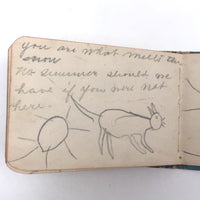 you are what melts the
snow
no summer should we
have if you were not
here.